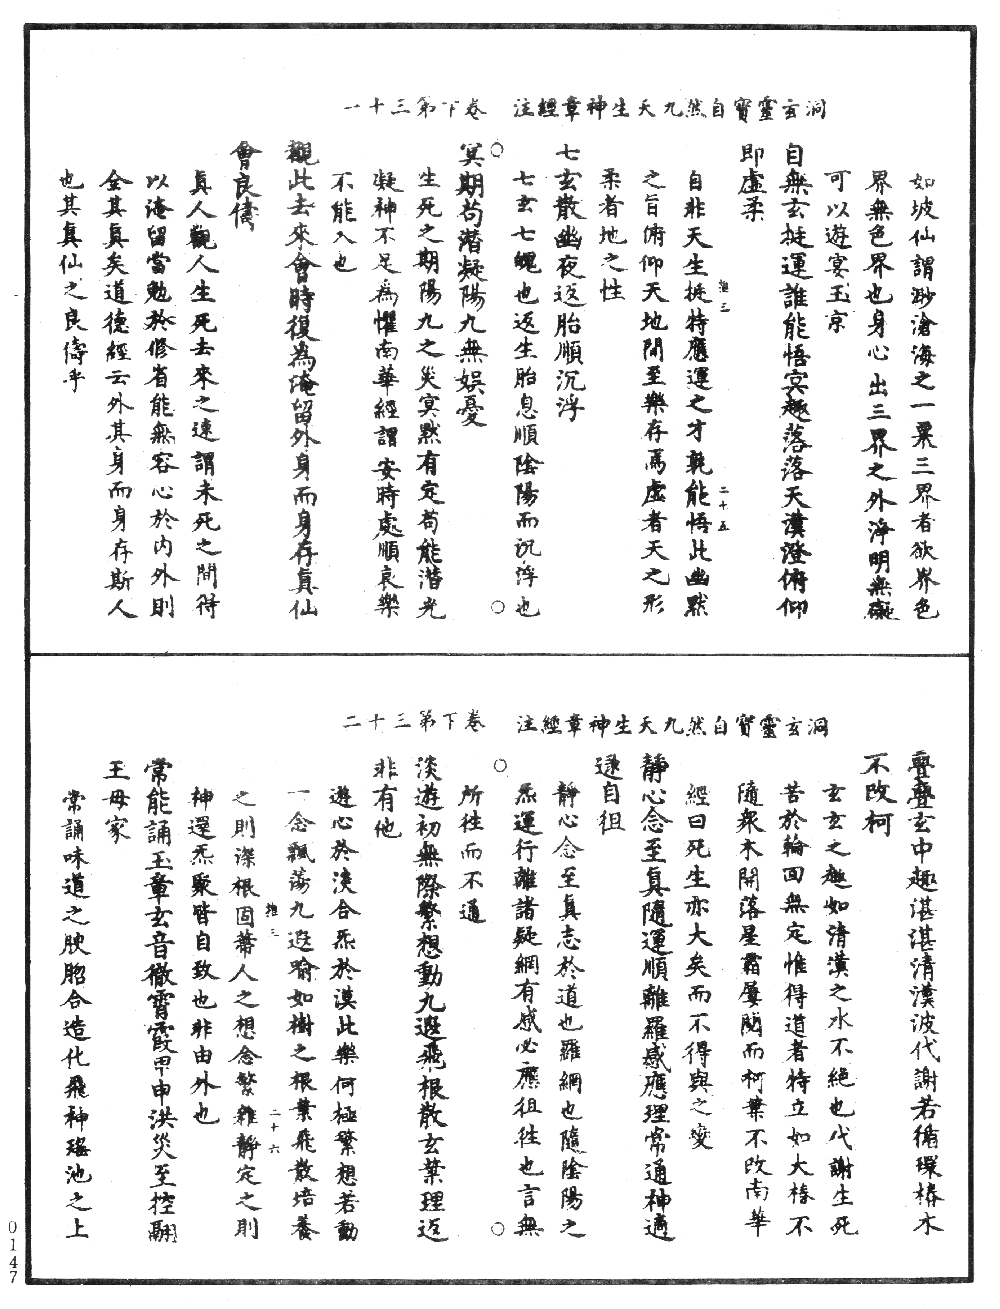 洞玄靈寶自然九天生神章經註　卷下第三十一
如坡仙謂渺滄海之一粟三界者欲界色
界無色界也身心出三界之外淨明無礙
可以遊宴玉京
自無玄挺運誰能悟冥趣落落天漢澄俯仰
即虛柔
自非天生挺特應運之才孰能悟此幽默
之旨俯仰天地間至樂存焉虛者天之形
柔者地之性
推三
二十五
七玄散幽夜返胎順沉浮
七玄七魄也返生胎息順陰陽而沉浮也
冥期苟潛凝陽九無娛憂
生死之期陽九之災冥默有定苟能潛光
凝神不足為懼南華經謂安時處順哀樂
不能入也
觀此去來會時復為淹留外身而身存真仙
會良儔
真人觀人生死去來之速謂未死之間得
以淹留當勉於修省能無容心於內外則
全其真矣道德經云外其身而身存斯人
也其真仙之良儔乎
洞玄靈寶自然九天生神章經註　卷下第三十二
亹亹玄中趣湛湛清漢波代謝若循環椿木
不改柯
玄玄之趣如清漢之水不絕也代謝生死
苦於輪回無定惟得道者特立如大椿不
隨衆木開落星霜屢閱而柯葉不改南華
經曰死生亦大矣而不得與之變
靜心念至真隨運順離羅感應理常通神適
逯自徂
靜心念至真志於道也羅網也隨陰陽之
炁運行離諸疑網有感必應徂徃也言無
所徃而不通
淡遊初無際繁想動九遐飛根散玄葉理返
非有他
遊心於淡合炁於漠此樂何極繁想若動
一念飄蕩九遐喻如樹之根葉飛散培養
之則深根固蔕人之想念繁雜靜定之則
推三
二十六
神還炁聚皆自致也非由外也
常能誦玉章玄音徹霄霞甲申洪災至控翮
王母家
常誦味道之腴脗合造化飛神瑤池之上
0147